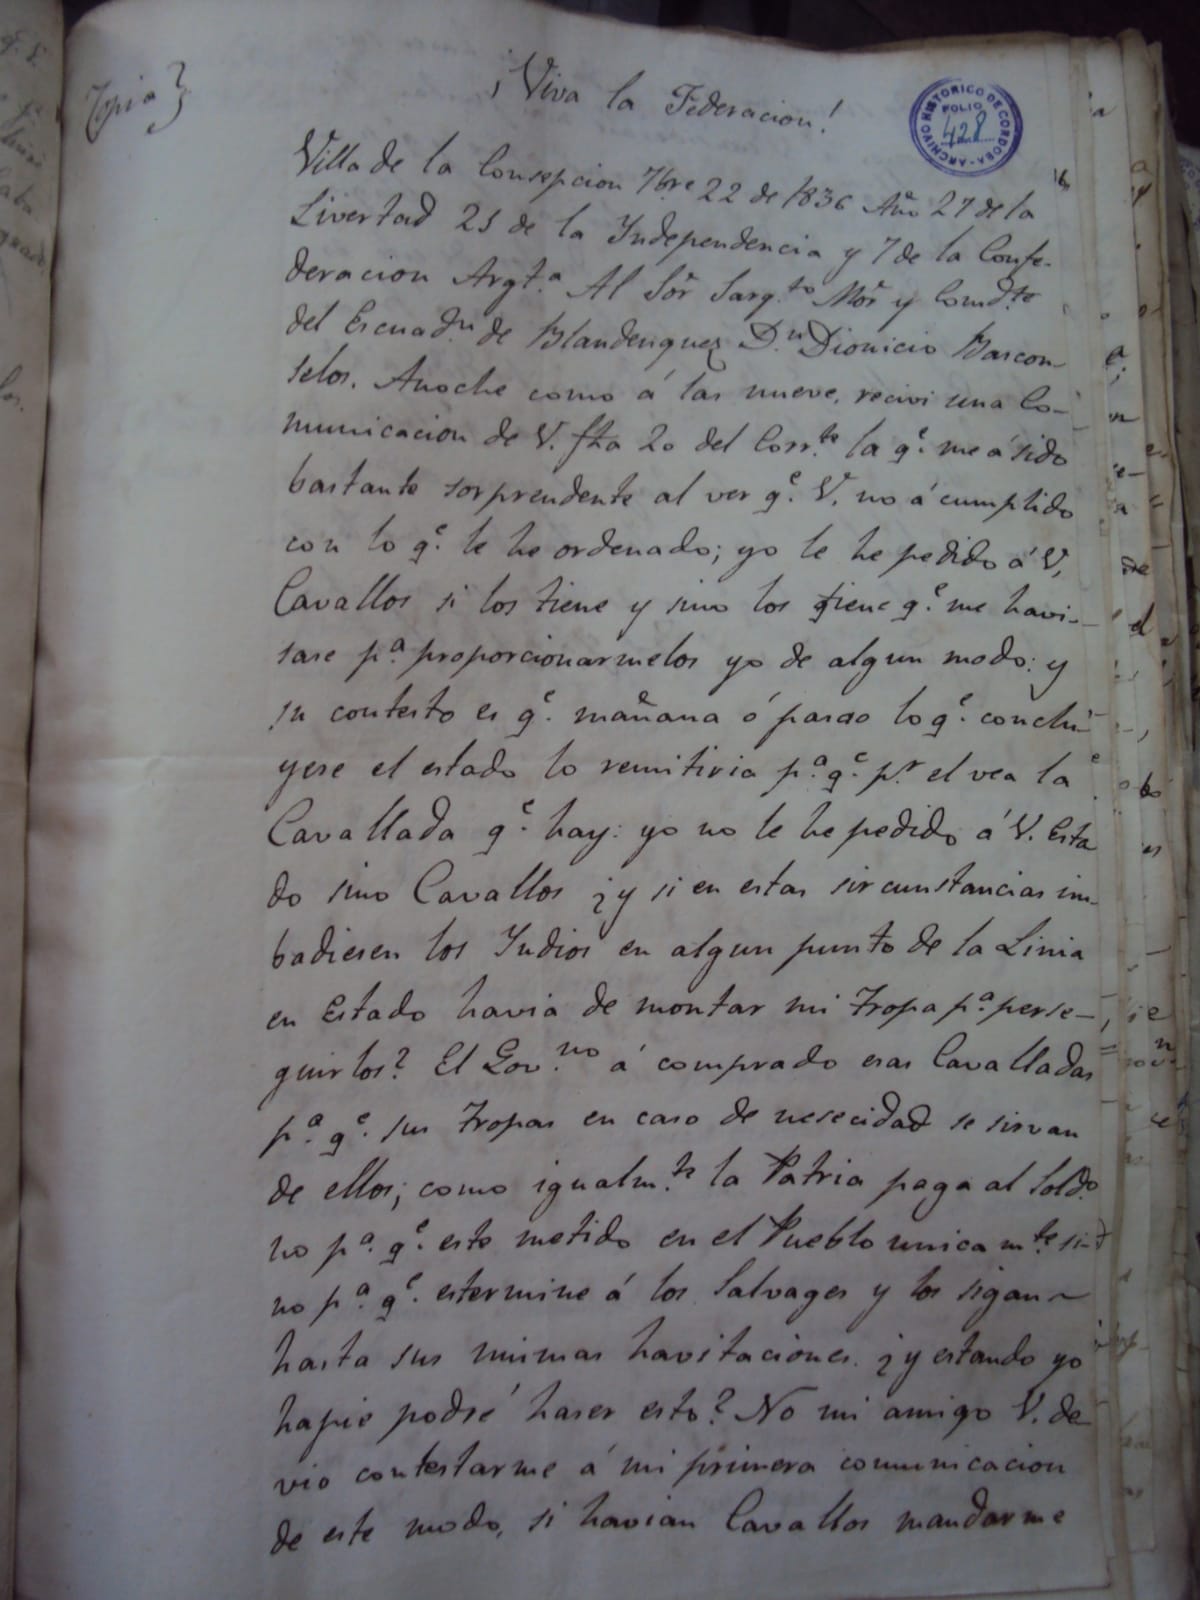 Copia}
¡Viva la Federacion!
ARCHIVO HISTORICO DE CORDOBA
FOLIO
428
Villa de la Consepcion 7bre 22 de 1836 Año 27 de la
Livertad 21 de la Yndependencia y 7 de la Confe-
deracion Argt.a Al Sor Sarg.to Mor y Comd.te
del Escuad.n de Blandengues D.n Dionicio Bascon-
selos. Anoche como á las nueve, recivi una Co-
municacion de V. fha 20 del Corr.te la q.e me á sido
bastante sorprendente al ver q.e V. no á cumplido
con lo q.e le he ordenado; yo le he pedido á V,
Cavallos si los tiene y sino los tiene q.e me havi-
sase p.a proporcionarmelos yo de algun modo: y
su contesto es q.e mañana ó pasao lo q.e conclu-
yese el estado lo remitiria p.a q.e p.r el vea la
Cavallada q.e hay: yo no le he pedido á V. Esta
do sino Cavallos ¿y si en estas sircunstancias im-
badiesen los Yndios en algun punto de la Linia
en Estado havia de montar mi Tropa p.a perse-
guirlos? El Gov.no á comprado esas Cavalladas
p.a q.e sus Tropas en caso de nesecidad se sirvan
de ellos; como igualm.te la Patria paga al Sold.o
no p.a q.e este metido en el Pueblo unicam.te si-
no p.a q.e estermine á los Salvages y los sigan
hasta sus mismas havitaciones. ¿y estando yo
hapie podré haser esto? No mi amigo V. de
vio contestarme á mi primera comunicacion
de este modo, si havian Cavallos mandarme